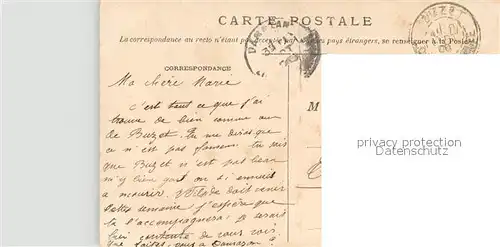 CARTE POSTALE
La correspondance au recto n'étant pas acceptée par tous les pays étrangers, se renseigner à la Poste
CORRESPONDANCE
BUZET
Ma chère Marie
M
C'est tout ce que j'ai
trouvé de bien comme vue
de Buzet Tu me diras que
ce n'est pas fameux. Tu sais
que Buzet n'est pas bien
gai on s'i ennuie
a mourir. doit venir
cette semaine j'espère que
tu l'accompagnera. Je serais
très contente de vous voir.
Que faites-vous a Damazan
privacy protection
www.oldthing.com